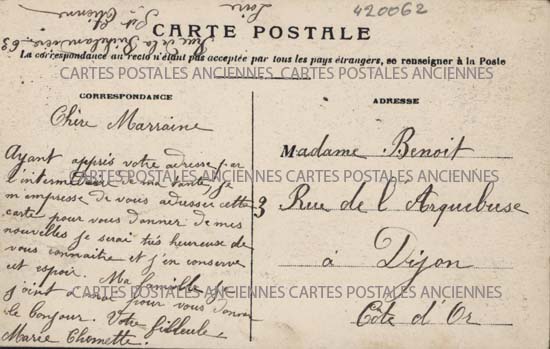 420062
Loire
St Etienne
Rue de la Richelandière 63
CARTE POSTALE
La correspondance au recto n'étant pas acceptée par tous les pays étrangers, se renseigner à la Poste
CARTES POSTALES ANCIENNES CARTES POSTALES ANCIENNES
CORRESPONDANCE
Chère Marraine
Ayant appris votre adresse par
l'intermédiaire de ma tante, je
m'empresse de vous adresser cette
carte pour vous donner de mes
nouvelles je serai très heureuse de
vous connaître et j'en conserve
et espoir. Ma famille se
joint à moi pour vous donner
le bonjour. Votre filleule
Marie Chomette.
ADRESSE
Madame Benoit
CARTES POSTALES ANCIENNES CARTES POSTALES ANCIENNES
3 Rue de l'Arquebuse
à Dijon
CARTES POSTALES ANCIENNES CARTES POSTALES ANCIENNES
Côte d'Or